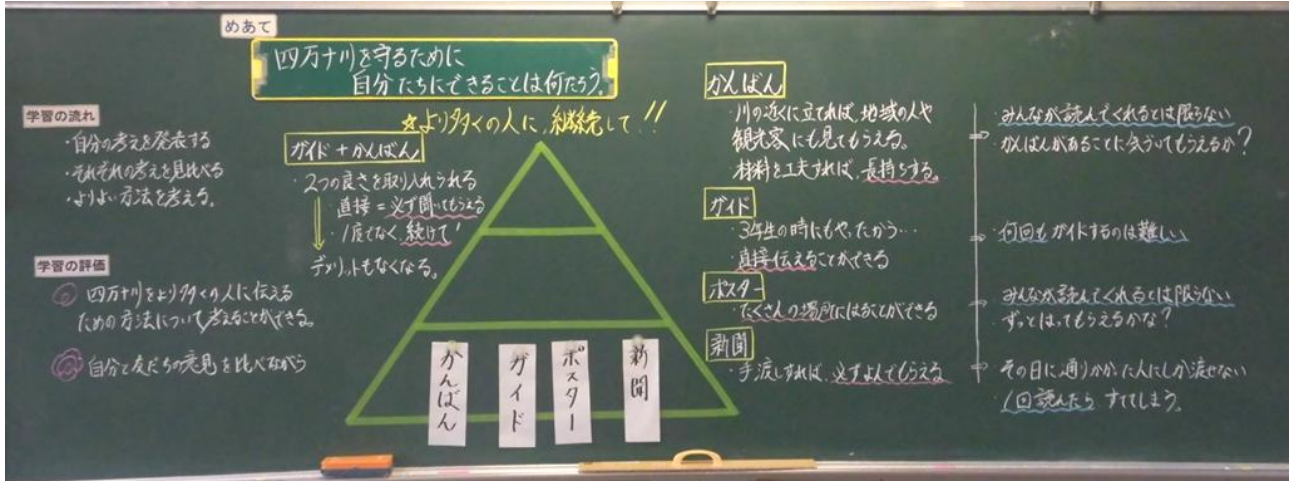 めあて
四万十川を守るために
自分たちにできることは何だろう。
☆より多くの人に、継続して!!
学習の流れ
・自分の考えを発表する
・それぞれの考えを見比べる
・よりよい方法を考える。
学習の評価
◎ 四万十川をより多くの人に伝える
ための方法について考えることができる。
◎ 自分と友だちの意見を比べながら
ガイド+かんばん
・2つの良さを取り入れられる
直接=必ず聞いてもらえる
・1度でなく、続けて!
デメリットもなくなる。
かんばん
ガイド
ポスター
新聞
かんばん
・川の近くに立てれば、地域の人や
観光客にも見てもらえる。
・材料を工夫すれば、長持ちする。
ガイド
・3年生の時にもやったから…
・直接伝えることができる
ポスター
・たくさんの場所にはることができる
新聞
・手渡しすれば、必ずよんでもらえる
・みんなが読んでくれるとは限らない
・かんばんがあることに会うってもらえるか?
・何回もガイドするのは難しい
・みんなが読んでくれるとは限らない
・ずっとはってもらえるかな?
・その日に通りかかった人にしか渡せない
・1回読んだら すててしまう。